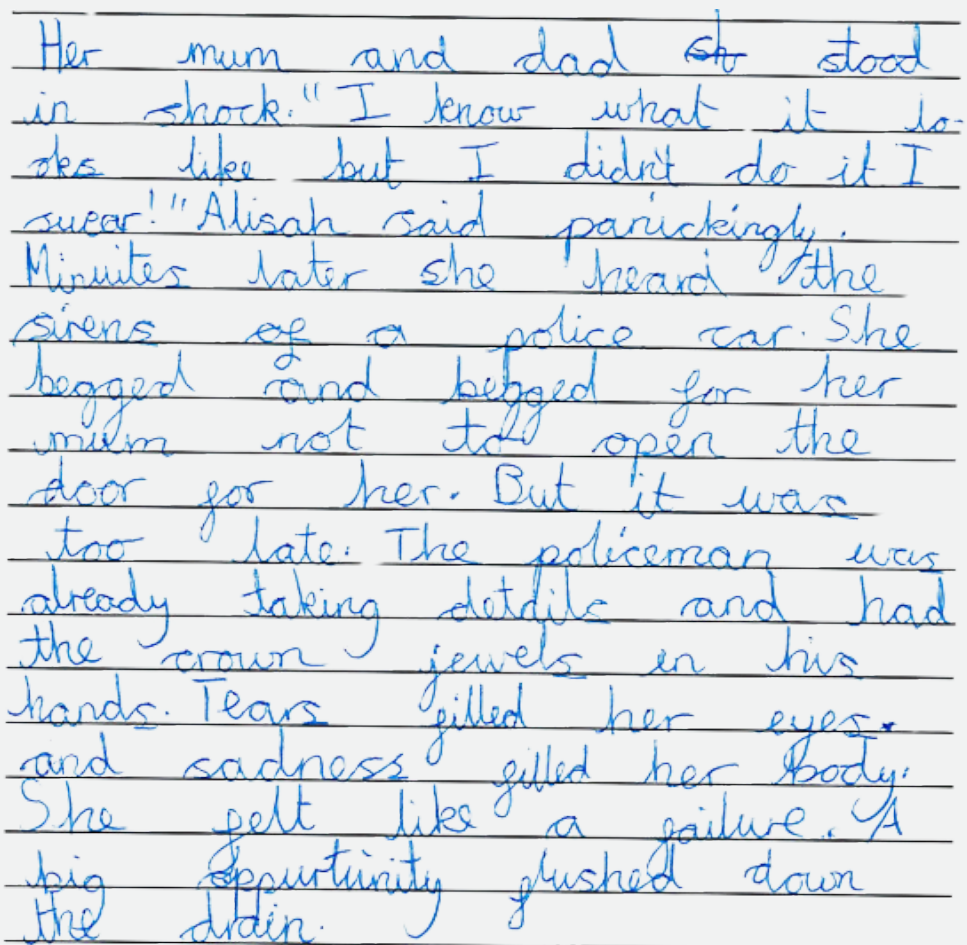 Her mum and dad sto stood
in shock. "I know what it lo-
oks like but I didn't do it I
swear!" Alisah said panickingly.
Minuites later she heard the
sirens of a police car. She
begged and begged for her
mum not to open the
door for her. But it was
too late. The policeman was
already taking details and had
the crown jewels in his
hands. Tears filled her eyes.
and sadness filled her body.
She felt like a failure. A
big oppurtunity flushed down
the drain.